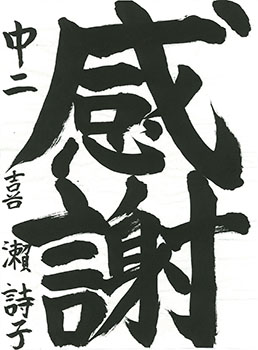 感謝
中二
喜瀬詩子